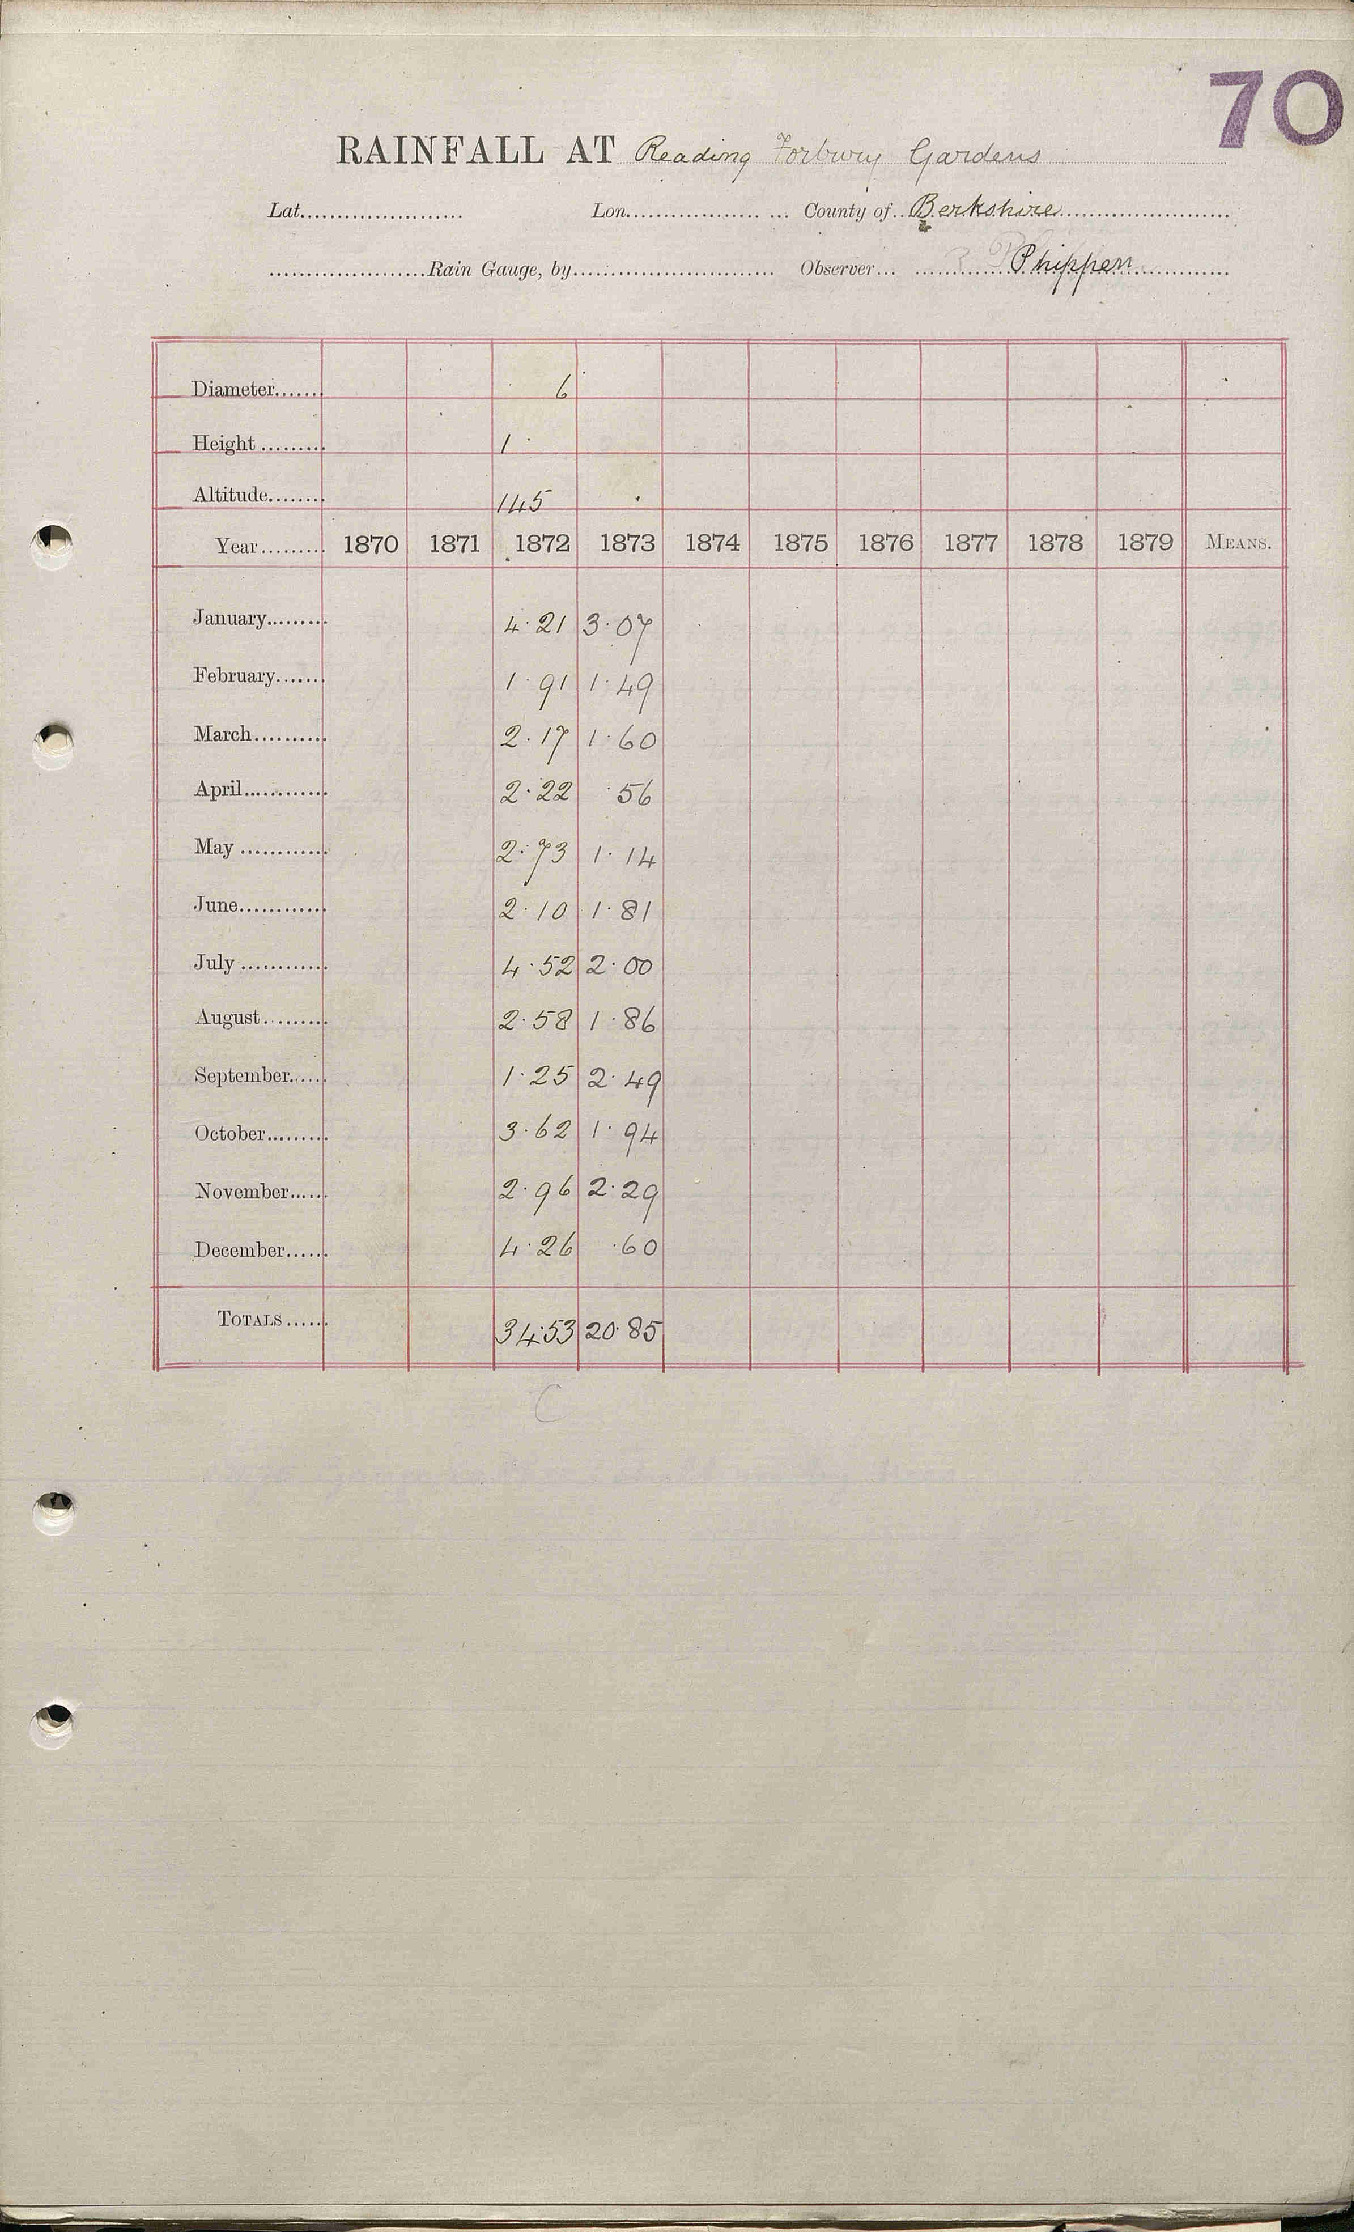 70
RAINFALL AT Reading Forbury Gardens
Lat. Lon. County of Berkshire
Rain Gauge, by Observer Phippen
Diameter 6
Height 1
Altitude 145
Year 1870 1871 1872 1873 1874 1875 1876 1877 1878 1879 MEANS.
January 4.21 3.07
February 1.91 1.49
March 2.17 1.60
April 2.22 .56
May 2.73 1.14
June 2.10 1.81
July 4.52 2.00
August 2.58 1.86
September 1.25 2.49
October 3.62 1.94
November 2.96 2.29
December 4.26 .60
TOTALS 34.53 20.85
C